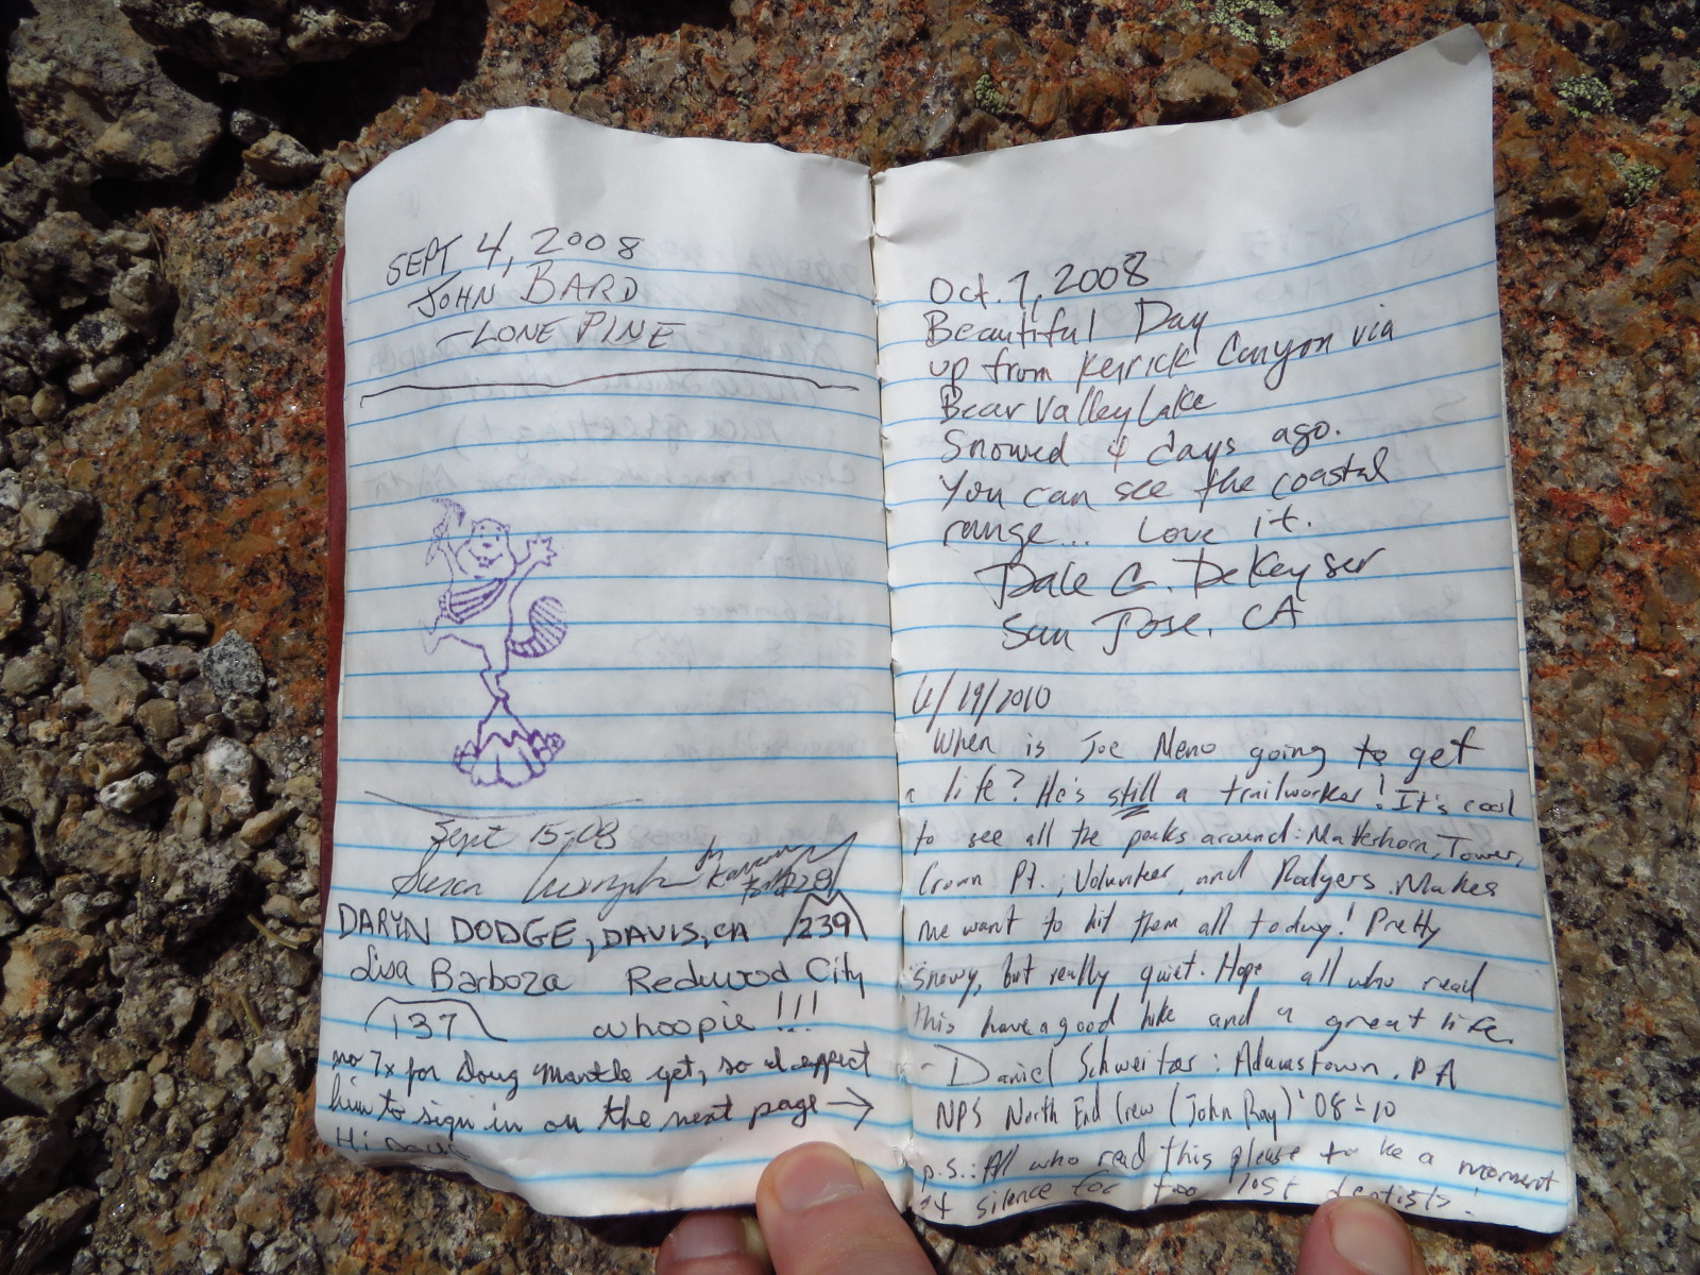 SEPT 4, 2008
JOHN BARD
- LONE PINE
Sept 15-08
Susan
DARYN DODGE, DAVIS, CA 239
Lisa Barboza Redwood City
137 whoopie!!!
no 7x for Doug Mantle yet, so I expect
him to sign in on the next page →
Hi Doug
Oct. 7, 2008
Beautiful Day
up from Kerrick Canyon via
Bear Valley Lake
Snowed 4 days ago.
You can see the coastal
range... Love it.
Dale G. DeKeyser
San Jose, CA
6/19/2010
When is Joe Meno going to get
a life? He's still a trailworker! It's cool
to see all the peaks around: Matterhorn, Tower,
Crown Pt., Volunteer, and Rodgers. Makes
me want to hit them all today! Pretty
snowy, but really quiet. Hope all who read
this have a good hike and a great life.
- Daniel Schweitzer: Adamstown, PA
NPS North End Crew (John Ray) '08-10
p.s.: All who read this please take a moment
of silence for two lost dentists!